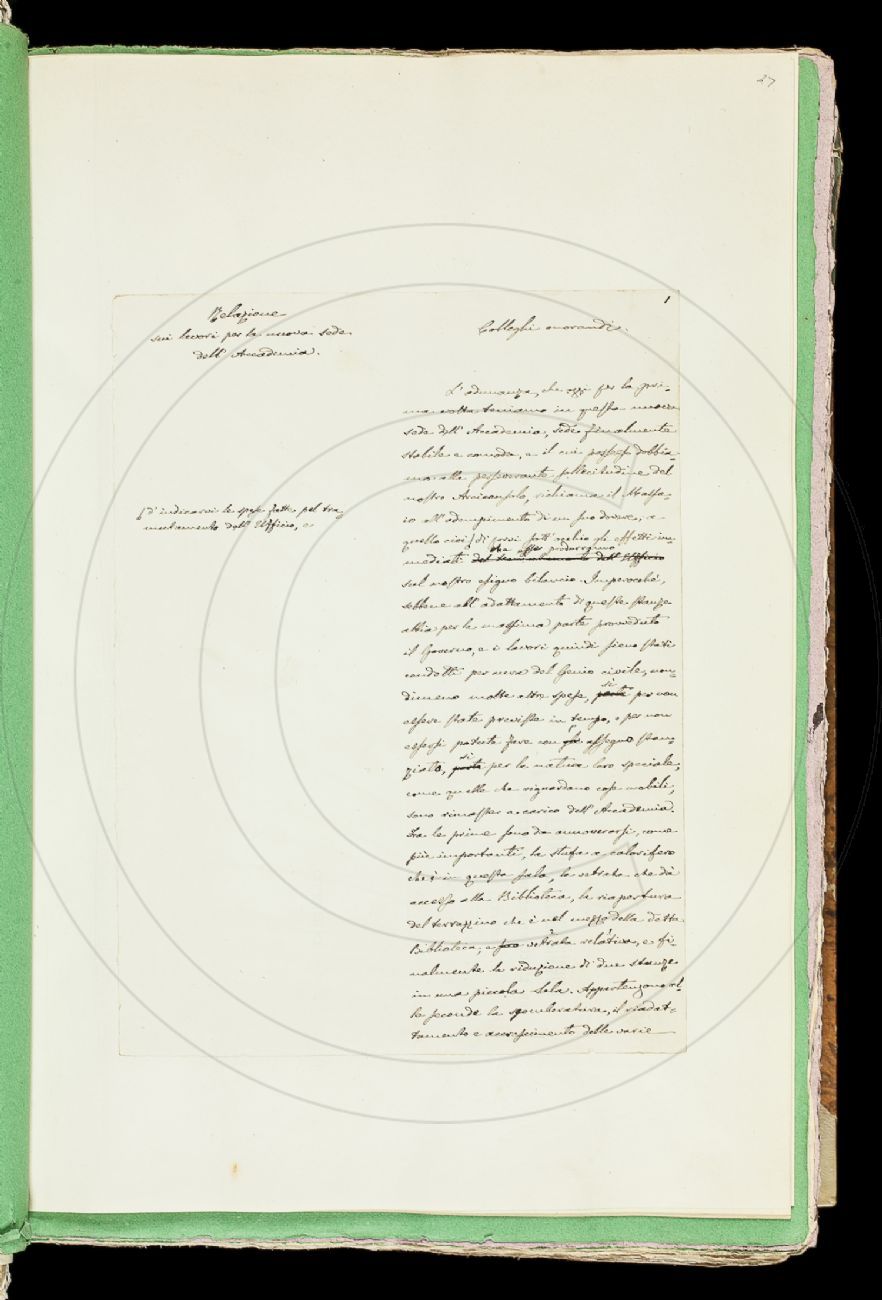 27
1
Relazione
sui lavori per la nuova sede
dell' Accademia.
Colleghi onorandi.
L'adunanza, che oggi per la pri-
ma volta teniamo in questa nuova
sede dell' Accademia, sede finalmente
stabile e comoda, e il cui possesso dobbia-
mo alla perseverante sollecitudine del
nostro Arciconsolo, richiama il Massa-
io all' adempimento di un suo dovere, e
quello cioè di porvi sott' occhio gli effetti im-
che esse produrranno
mediati del tramutamento dell' Uffizio
sul nostro esiguo bilancio. Imperocchè,
sebbene all' adattamento di queste stanze
abbia per la massima parte provveduto
il Governo, e i lavori quindi sieno stati
condotti per cura del Genio civile, non-
si
dimeno molte altre spese, parte per non
essere state previste in tempo, o per non
essersi potute fare con assegno stan-
si
ziato, parte per la natura loro speciale,
come quelle che riguardano cose mobili,
sono rimaste a carico dell' Accademia.
Tra le prime sono da annoverarsi, come
più importanti, la stufa a calorifero
che è in questa sala, la vetrata che dà
accesso alla Biblioteca, la riapertura
del terrazzino che è nel mezzo della detta
Biblioteca, e vetrata relativa, e fi-
nalmente la riduzione di due stanze
in una piccola Sala. Appartengono al-
le seconde la sgomberatura, il riadat-
tamento e accrescimento delle varie
d' indicarvi le spese fatte pel tra-
mutamento dell' Uffizio, e